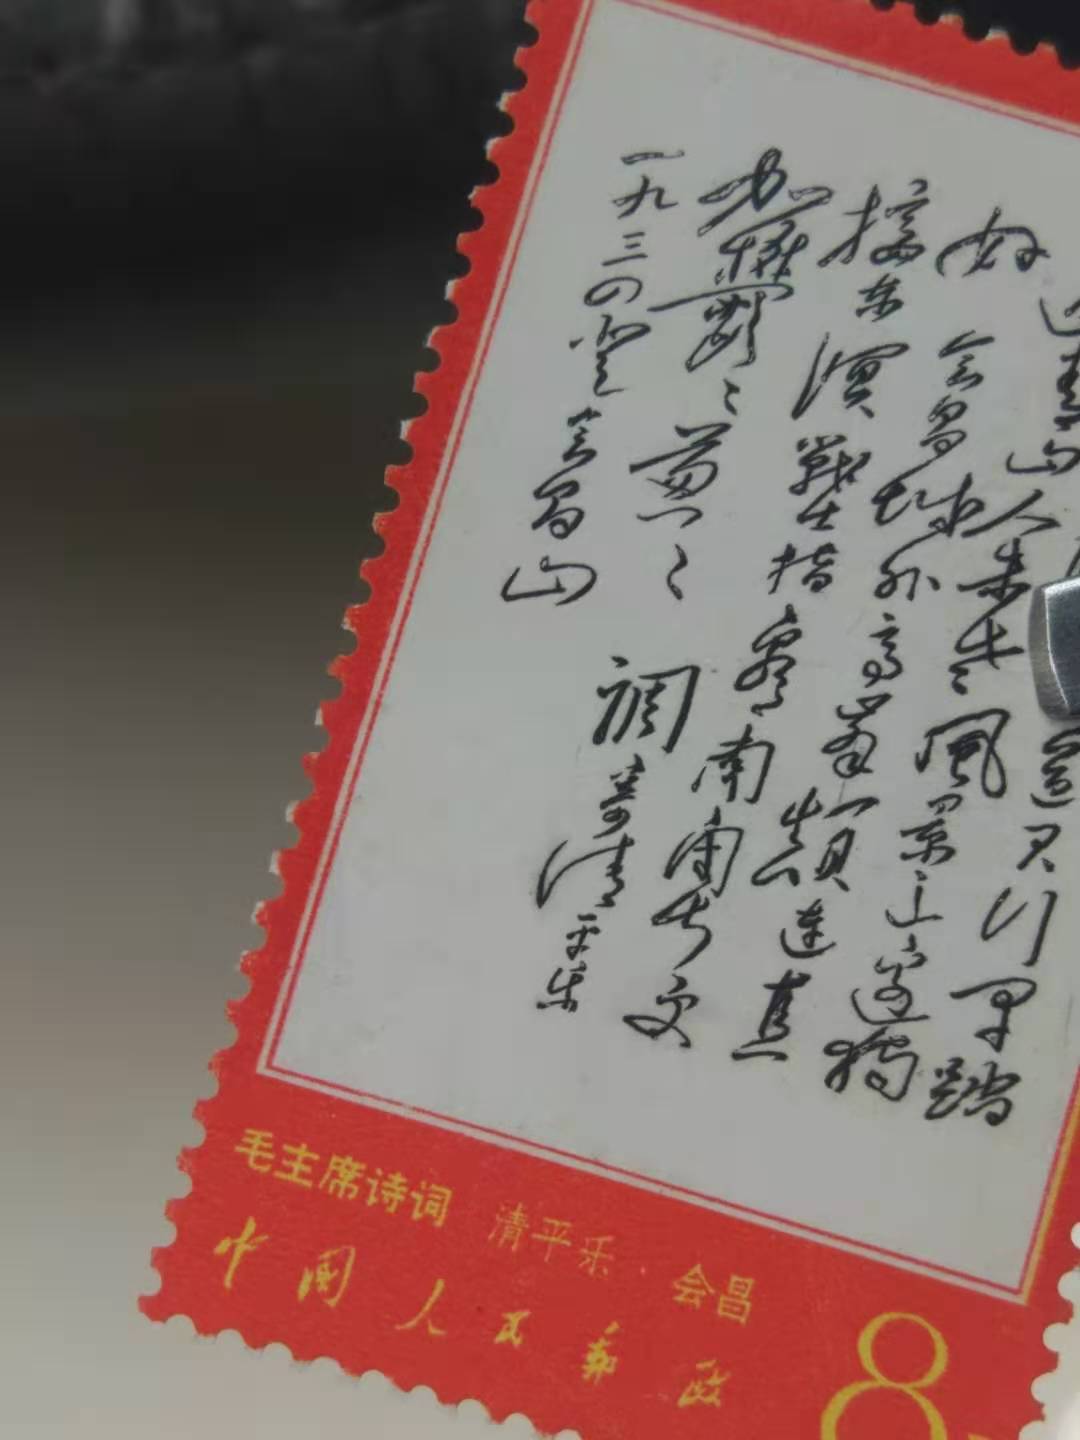 道君行早踏
遍青山人未老风景这边独
好 会昌城外高峯颠连直
接东溟战士指看南粤更
加郁郁ミ葱ミ 调寄清平乐
一九三四登会昌山
毛主席诗词 清平乐·会昌
中国人民邮政
8